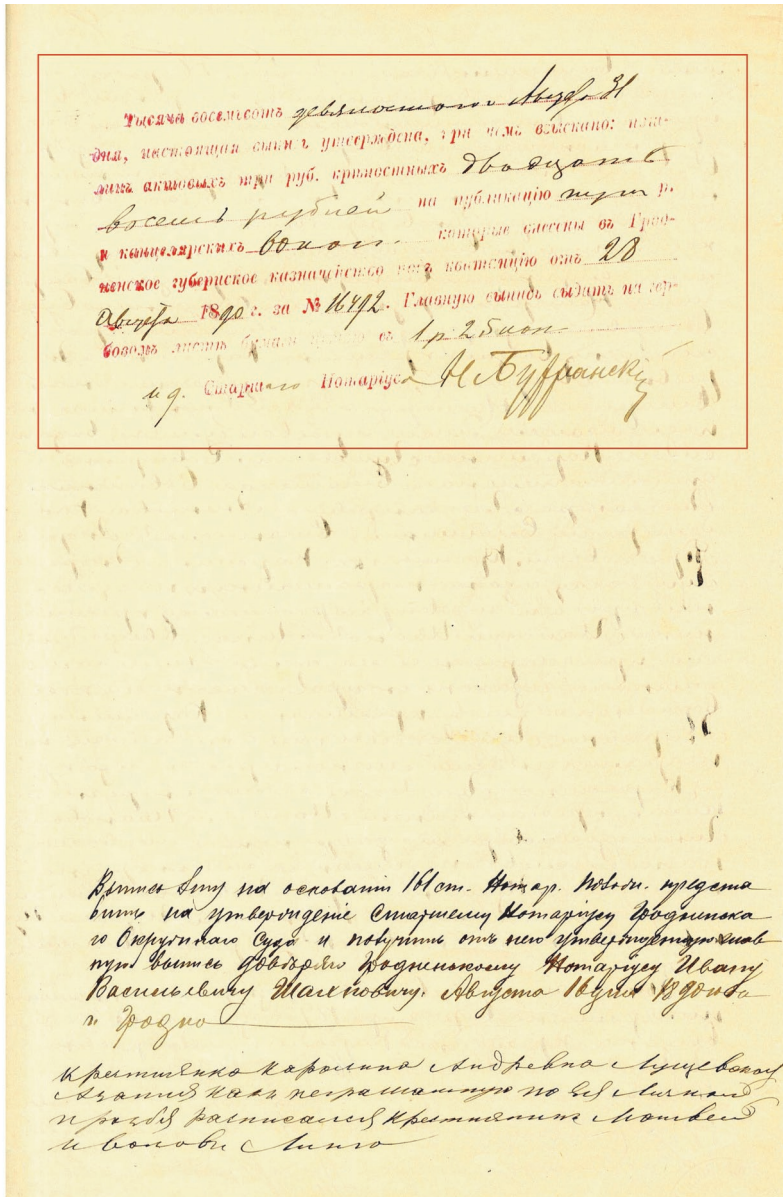 Тысяча восемьсотъ девяностого Августа 31
дня, настоящая выпись утверждена, при чемъ взыскано: пош-
линъ актовыхъ три руб. крѣпостныхъ двадцать
восемь рублей на публикацію три р.
и канцелярскихъ 60 коп. которые внесены въ Грод-
ненское губернское казначейство подъ квитанцію отъ 28
Августа 1890 г. за № 16492. Главную выпись выдать на гер-
бовомъ листѣ въ 1 р 25 коп
и д. Старшаго Нотаріуса
Выпись эту на основаніи 161 ст. Нотар. Полож. предста
вить на утвержденіе Старшему Нотаріусу Гродненска
го Окружнаго Суда и получить отъ него утвержденную глав
ную выпись довѣряю Гродненскому Нотаріусу Ивану
Васильевичу Августа 16 дня 1890 года
г. Гродно
Крестьянка Каролина Андреевна
а за нея какъ неграмотную по ея личной
прозьбѣ расписался крестьянинъ Матвей